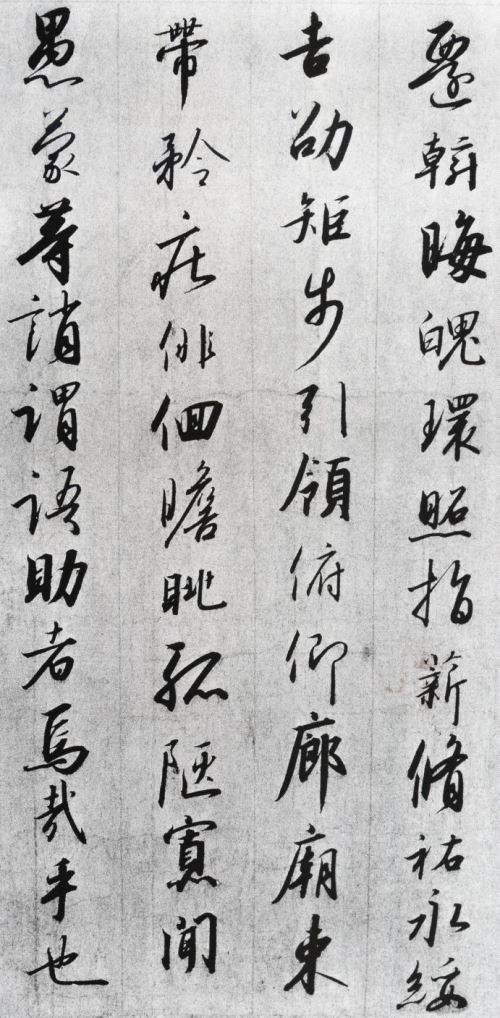 斡晦魄環照指薪脩祐永綏
吉劭矩步引領俯仰廊廟束
帶矜庄俳佪瞻眺孤陋寡聞
愚蒙等誚謂語助者焉哉乎也